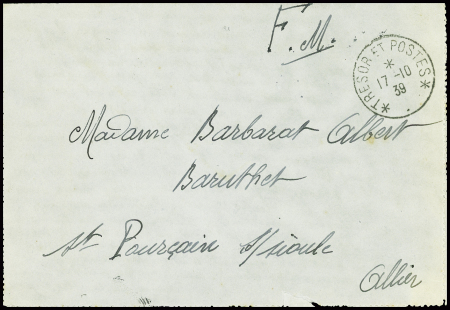 F.M.
* TRESOR ET POSTES *
*
17-10
39
Madame Barbarat Albert
Baruthet
St Pourçain s/sioule
Allier